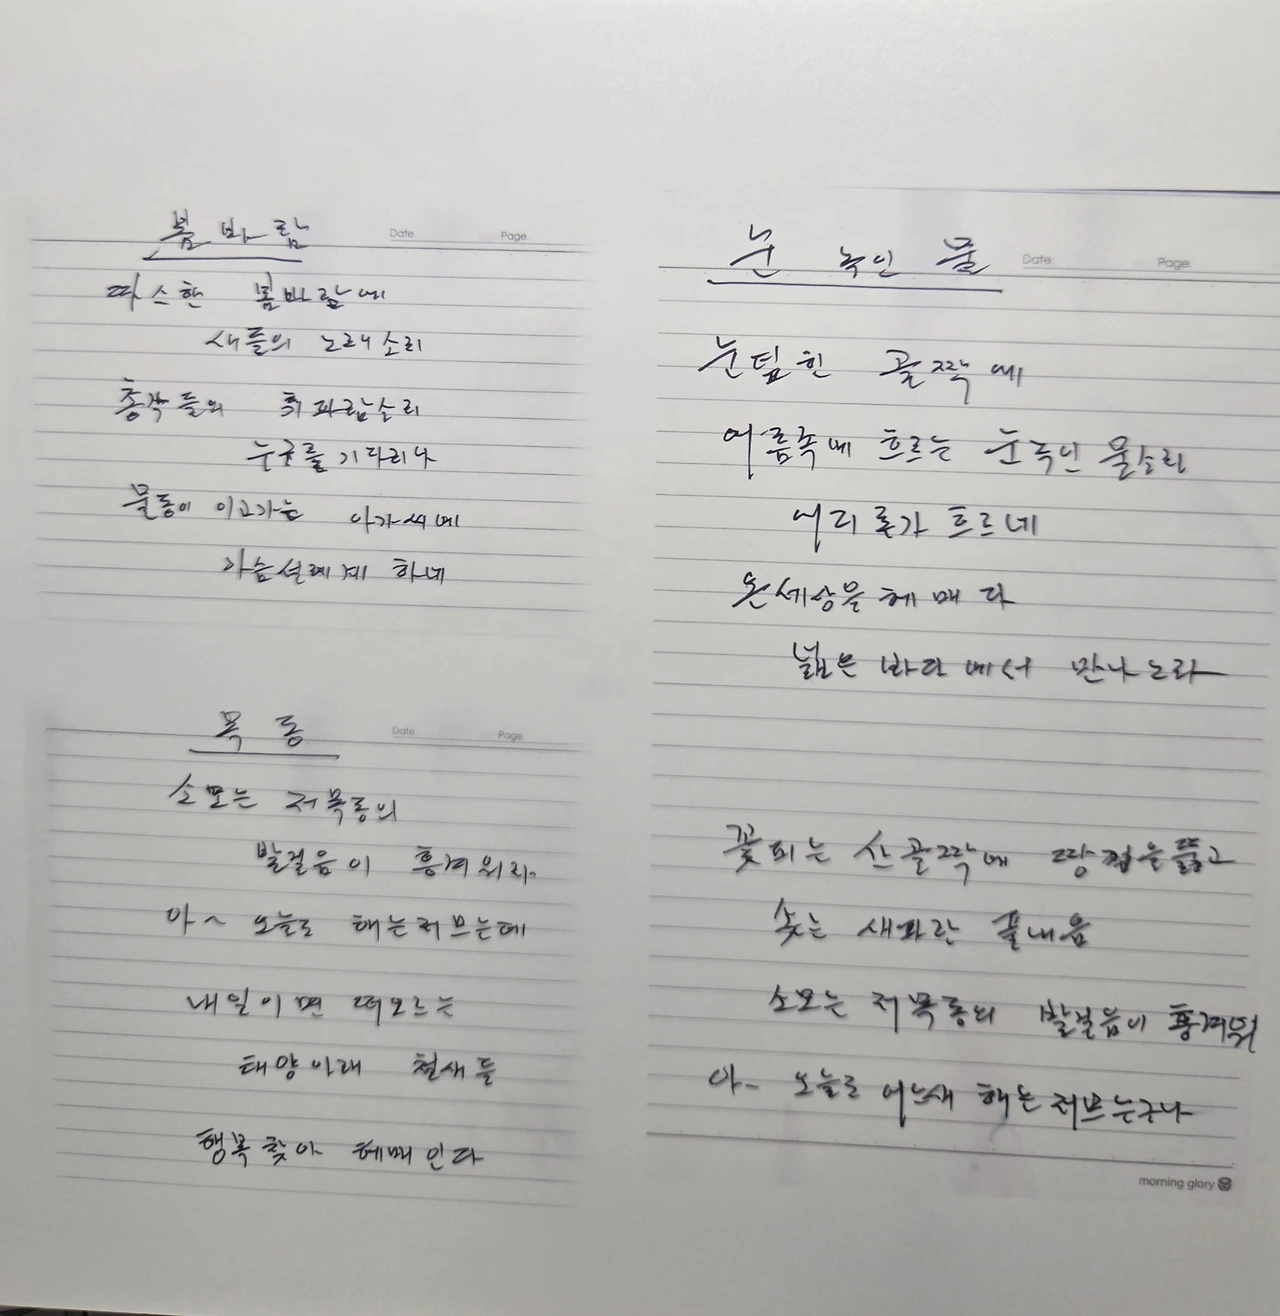 봄 바 람
Date Page
따 스 한 봄바람에
새들의 노래소리
총각들의 휘파람소리
누구를 기다리나
물동이 이고가는 아가씨에
가슴설레게 하네
목 동
Date Page
소모는 저목동의
발걸음이 흥겨워라
아~ 오늘도 해는저므는데
내일이면 떠오르는
태양아래 철새들
행복찾아 헤매인다
눈 녹인 물
Date. Page.
눈덮힌 골짝에
어름속에 흐르는 눈녹인 물소리
어디론가 흐르네
온세상을 헤매다
넓은 바다에서 만나노라
꽃피는 산골짝에 땅껍을뚫고
솟는 새파란 풀내음
소모는 저목동의 발걸음이 흥겨워
아~ 오늘도 어느새 해는저므는구나
morning glory